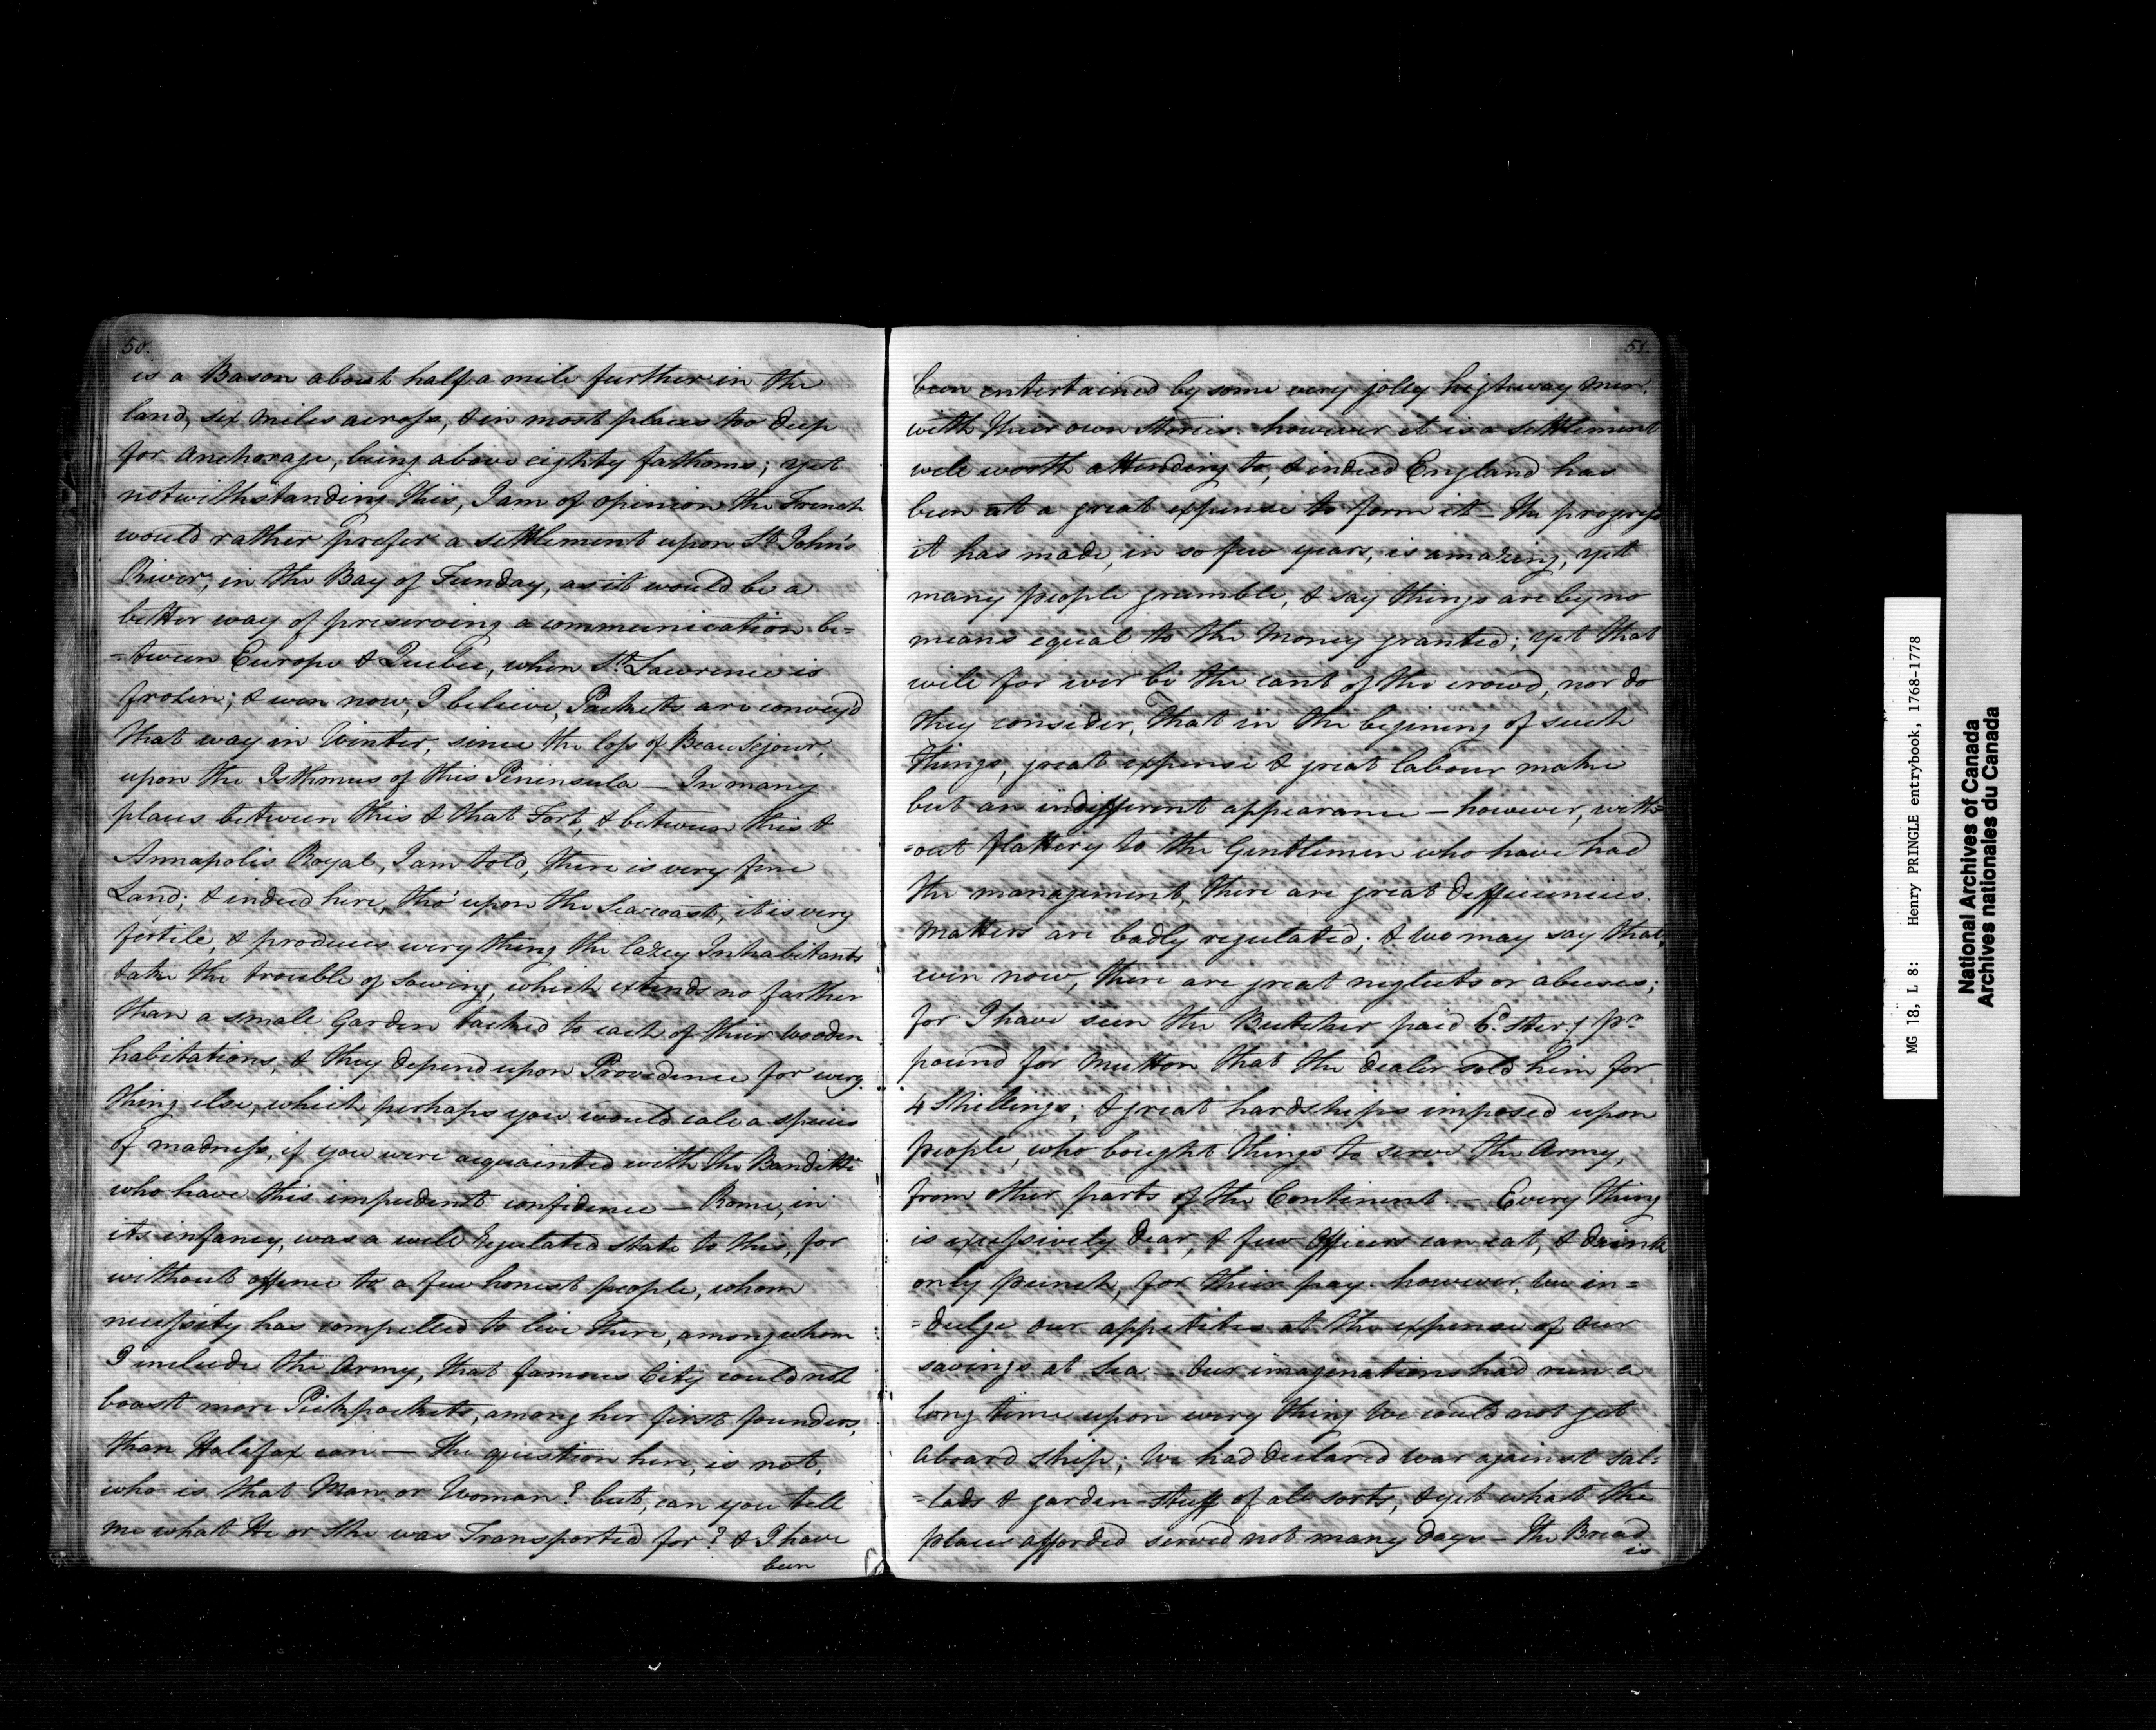 50.
is a Bason about half a mile further in the
land, six miles across, & in most places too deep
for Anchorage, being above eighty fathoms; yet
notwithstanding this, I am of opinion the French
would rather prefer a settlement upon St. John's
River, in the Bay of Funday, as it would be a
better way of preserving a communication be=
=tween Europe & Quebec, when St. Lawrence is
frozen; & even now, I believe, Packets are convey'd
that way in Winter, since the loss of Beau Sejour,
upon the Isthmus of this Peninsula — In many
places between this & that Fort, & between this &
Annapolis Royal, I am told, there is very fine
Land; & indeed here, tho' upon the Sea coast, it is very
fertile, & produces every thing the lazey Inhabitants
take the trouble of sowing, which extends no farther
than a small Garden tacked to each of their wooden
habitations, & they depend upon Providence for every
thing else, which perhaps you would call a species
of madness, if you were acquainted with the Banditti
who have this impudent confidence — Rome, in
its infancy, was a well regulated state to this, for
without offence to a few honest people, whom
necessity has compelled to live there, among whom
I include the Army, that famous City could not
boast more Pickpockets, among her first founders,
than Halifax can — the question here, is not,
who is that Man or Woman? but, can you tell
me what He or She was Transported for? & I have
been
51.
been entertained by some very jolly highway men,
with their own stories. however it is a settlement
well worth attending to, & indeed England has
been at a great expense to form it — the progress
it has made, in so few years, is amazing, yet
many people grumble, & say things are by no
means equal to the Money granted; yet that
will for ever be the cant of the crowd, nor do
they consider, that in the begining of such
things, great expense & great labour make
but an indifferent appearance — however, with=
=out flattery to the Gentlemen who have had
the management, there are great defficiencies.
Matters are badly regulated; & we may say that,
even now, there are great neglects or abuses;
for I have seen the Butcher paid 6d. sterg. pr.
pound for Mutton that the dealer sold him for
4 Shillings; & great hardships imposed upon
people, who bought things to serve the Army,
from other parts of the Continent. — Every thing
is excessively dear, & few Officers can eat, & drink
only punch, for their pay. however, we in=
=dulge our appetites at the expense of our
savings at Sea — Our imaginations had run a
long time upon every thing we could not get
aboard ship; We had declared war against sal=
=lads & garden-stuff of all sorts, & yet what the
place afforded served not many days — The Bread
is
MG 18, L 8: Henry PRINGLE entrybook, 1768-1778
National Archives of Canada
Archives nationales du Canada